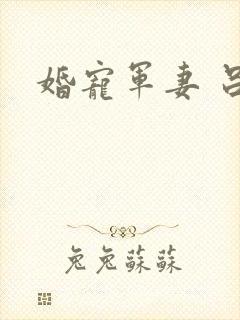 婚寵軍妻
兔兔蘇蘇